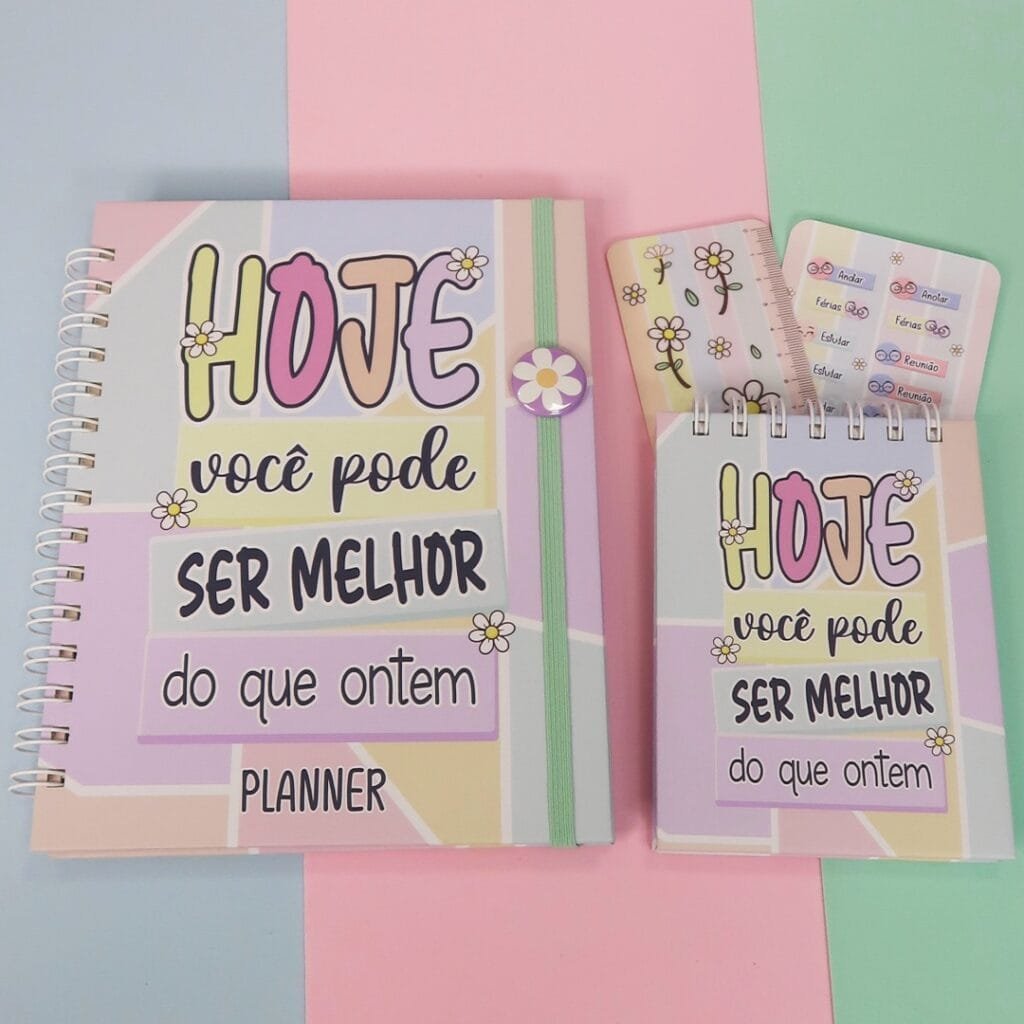 HOJE
você pode
SER MELHOR
do que ontem
PLANNER
Anotar
Férias
Estudar
Estudar
Anotar
Férias
Reunião
Reunião
HOJE
você pode
SER MELHOR
do que ontem